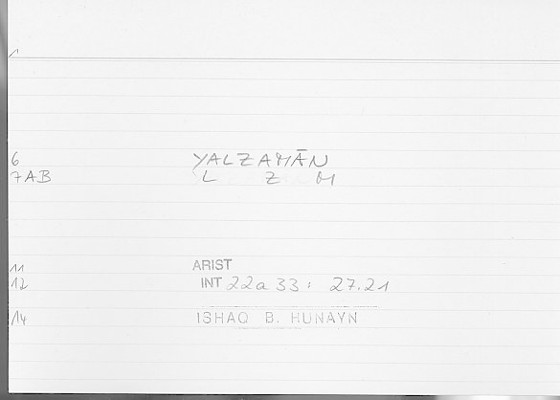 1
6 YALZAMĀN
7AB L Z M
11 ARIST
12 INT 22a 33 : 27.21
14 ISHAQ B. HUNAYN